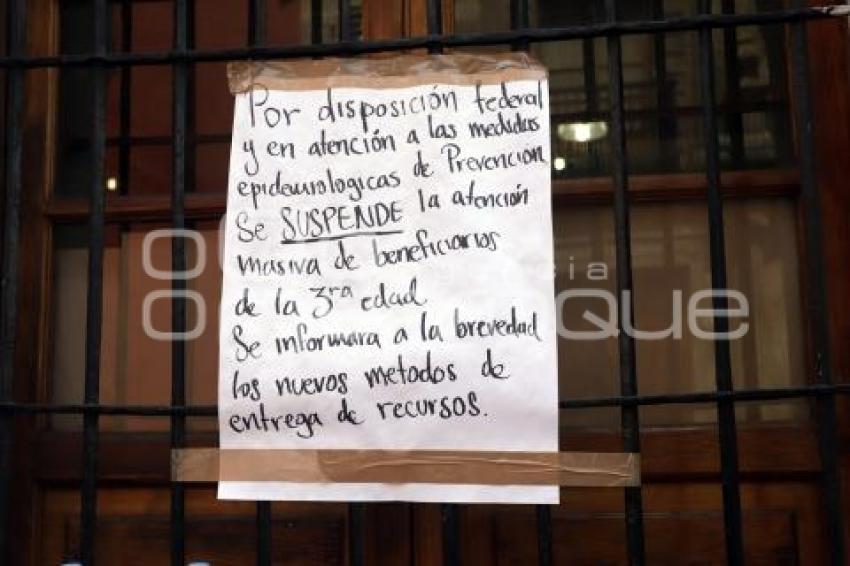 Por disposición federal
y en atención a las medidas
epidemiologicas de Prevención
Se SUSPENDE la atención
masiva de beneficiarios
de la 3ra edad
Se informara a la brevedad
los nuevos metodos de
entrega de recursos.